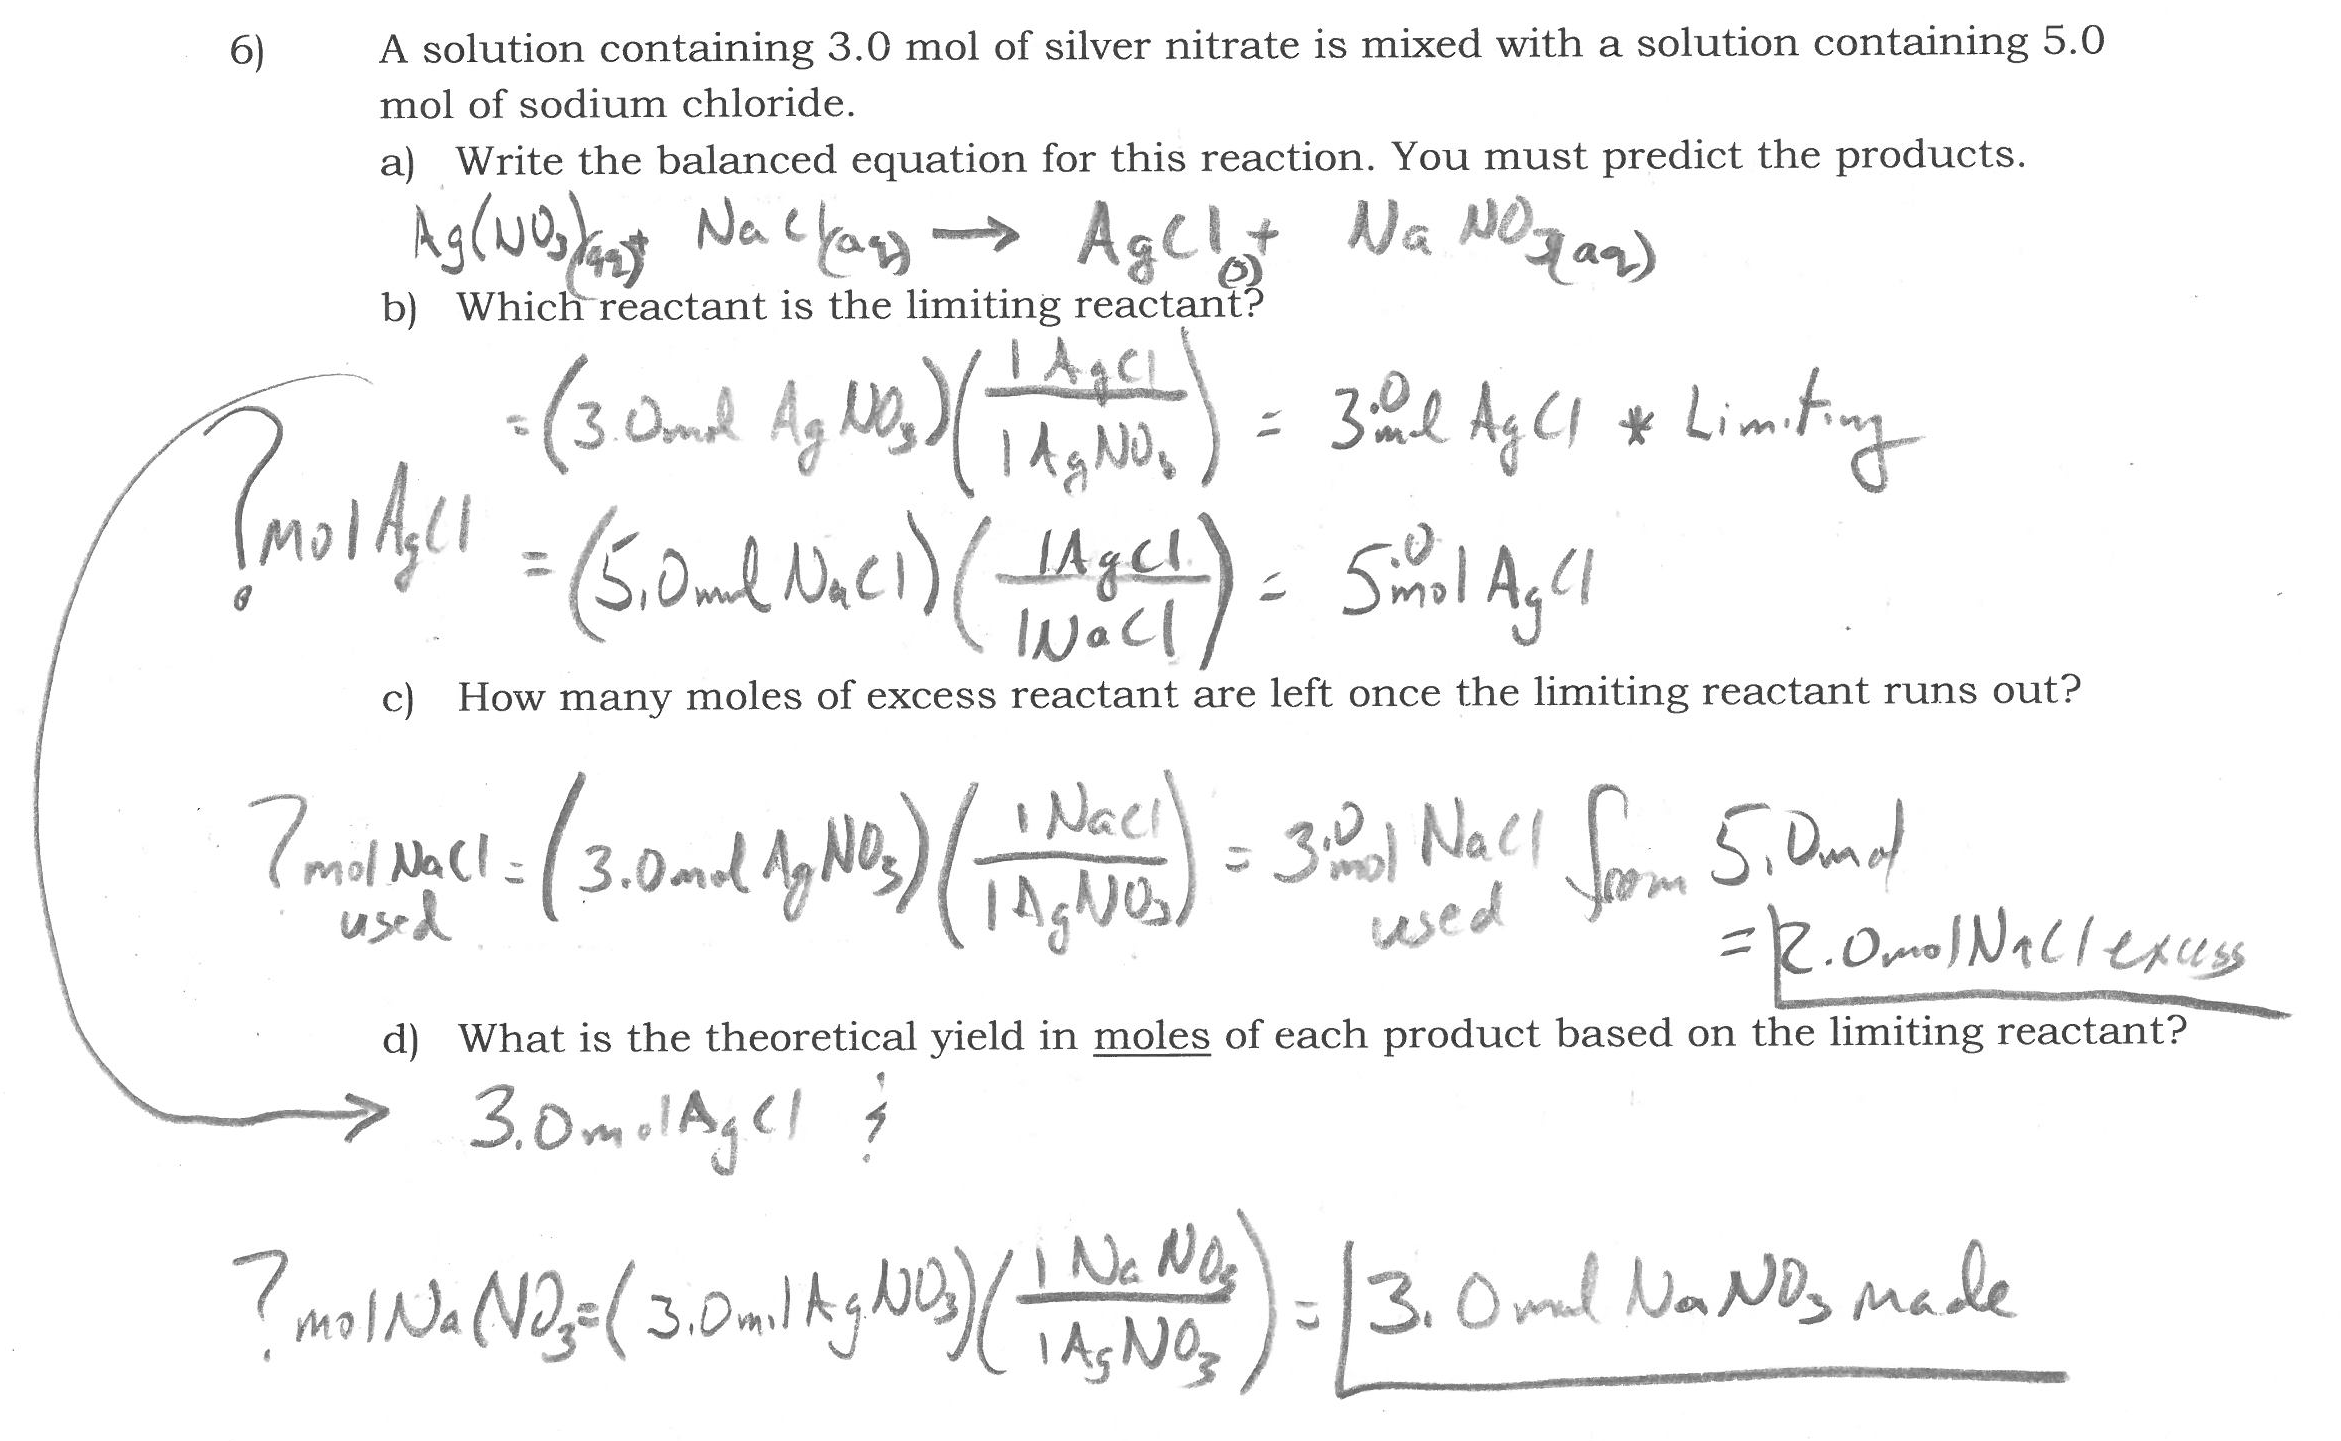 6) A solution containing 3.0 mol of silver nitrate is mixed with a solution containing 5.0
mol of sodium chloride.
a) Write the balanced equation for this reaction. You must predict the products.
Ag(NO₃)(aq) + NaCl(aq) → AgCl(s) + NaNO₃(aq)
b) Which reactant is the limiting reactant?
= (3.0mol AgNO₃) (1 AgCl / 1 AgNO₃) = 3.0 mol AgCl * Limiting
? mol AgCl
= (5.0mol NaCl) (1 AgCl / 1 NaCl) = 5.0 mol AgCl
c) How many moles of excess reactant are left once the limiting reactant runs out?
? mol NaCl used = (3.0mol AgNO₃) (1 NaCl / 1 AgNO₃) = 3.0 mol NaCl used from 5.0mol
= 2.0mol NaCl excess
d) What is the theoretical yield in moles of each product based on the limiting reactant?
→ 3.0mol AgCl ;
? mol Na(NO₃ = (3.0mol AgNO₃) (1 NaNO₃ / 1 AgNO₃) = 3.0mol NaNO₃ made